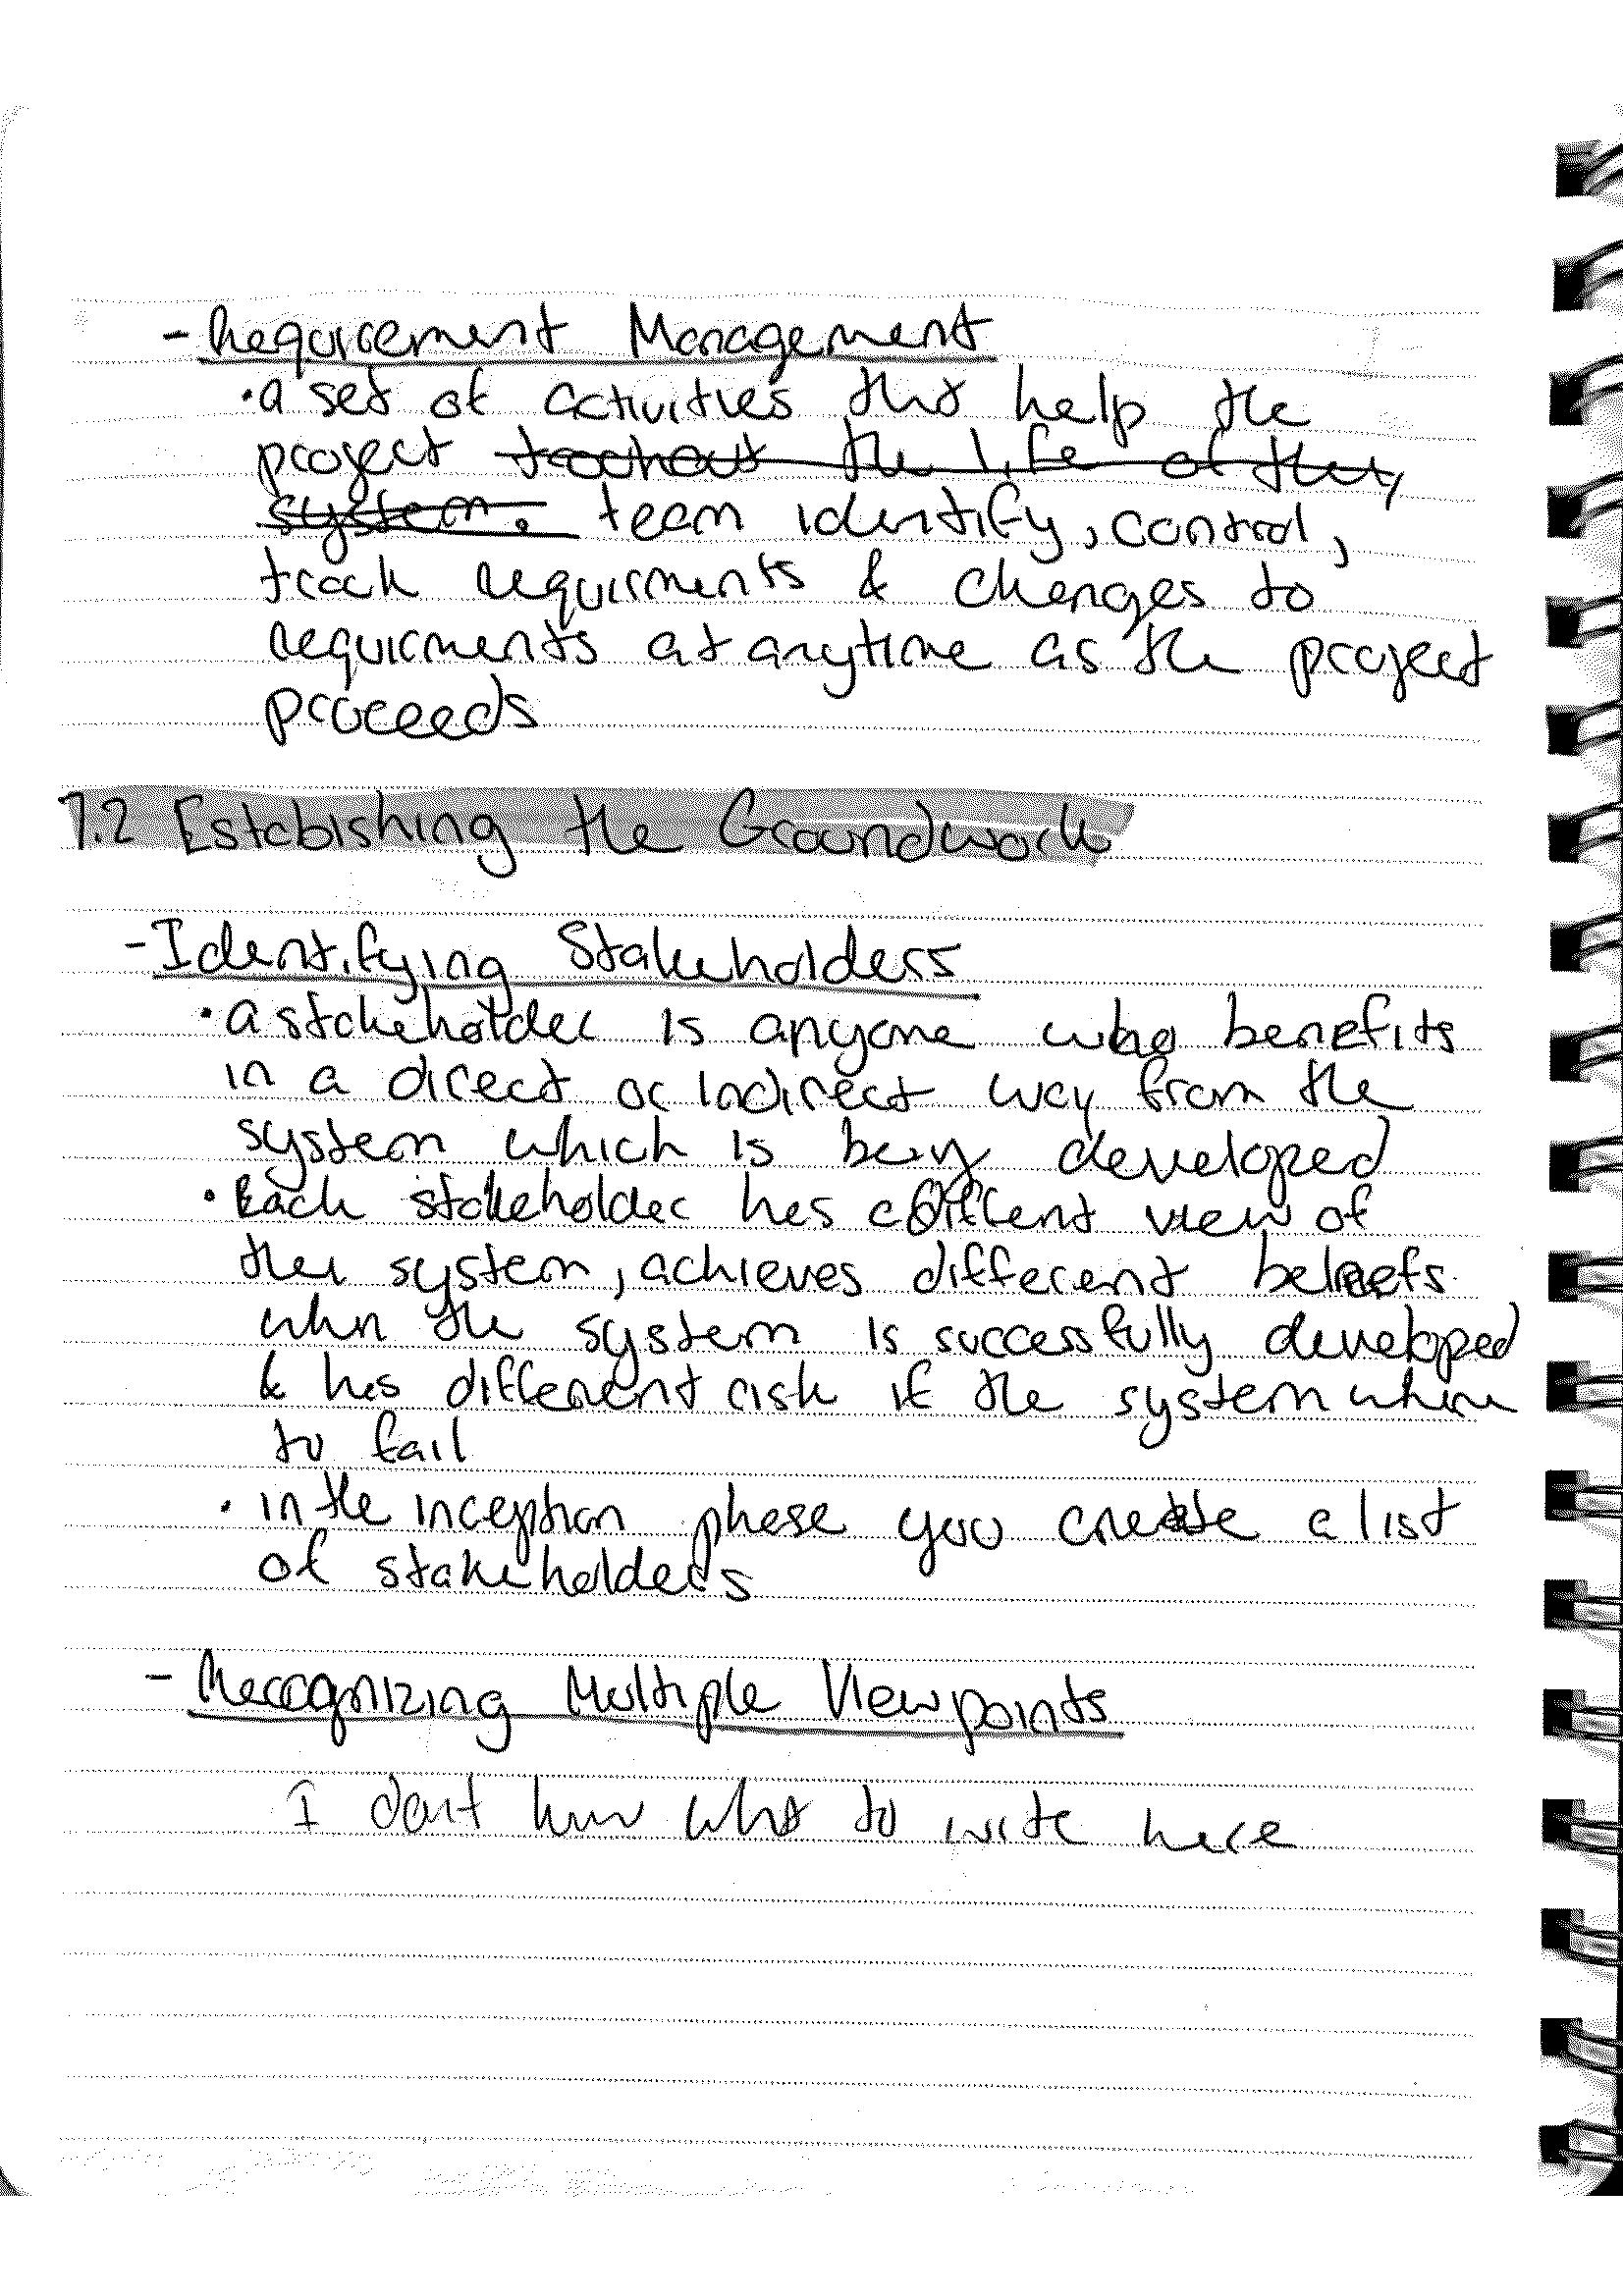 - Requirement Management
• a set of activities that help the
project troohout the life of the
system. team identify, control,
track requirments & changes to
requirments at anytime as the project
proceeds
7.2 Establishing the Groundwork
- Identifying Stakeholders
• a stakeholder is anyone who benefits
in a direct or indirect way from the
system which is being developed
• Each stakeholder has different view of
the system, achieves different
when the system is successfully developed
& has different risk if the system where
to fail
• in the inception phase you create a list
of stakeholders
- Recognizing Multiple Viewpoints
I dont know what to write here